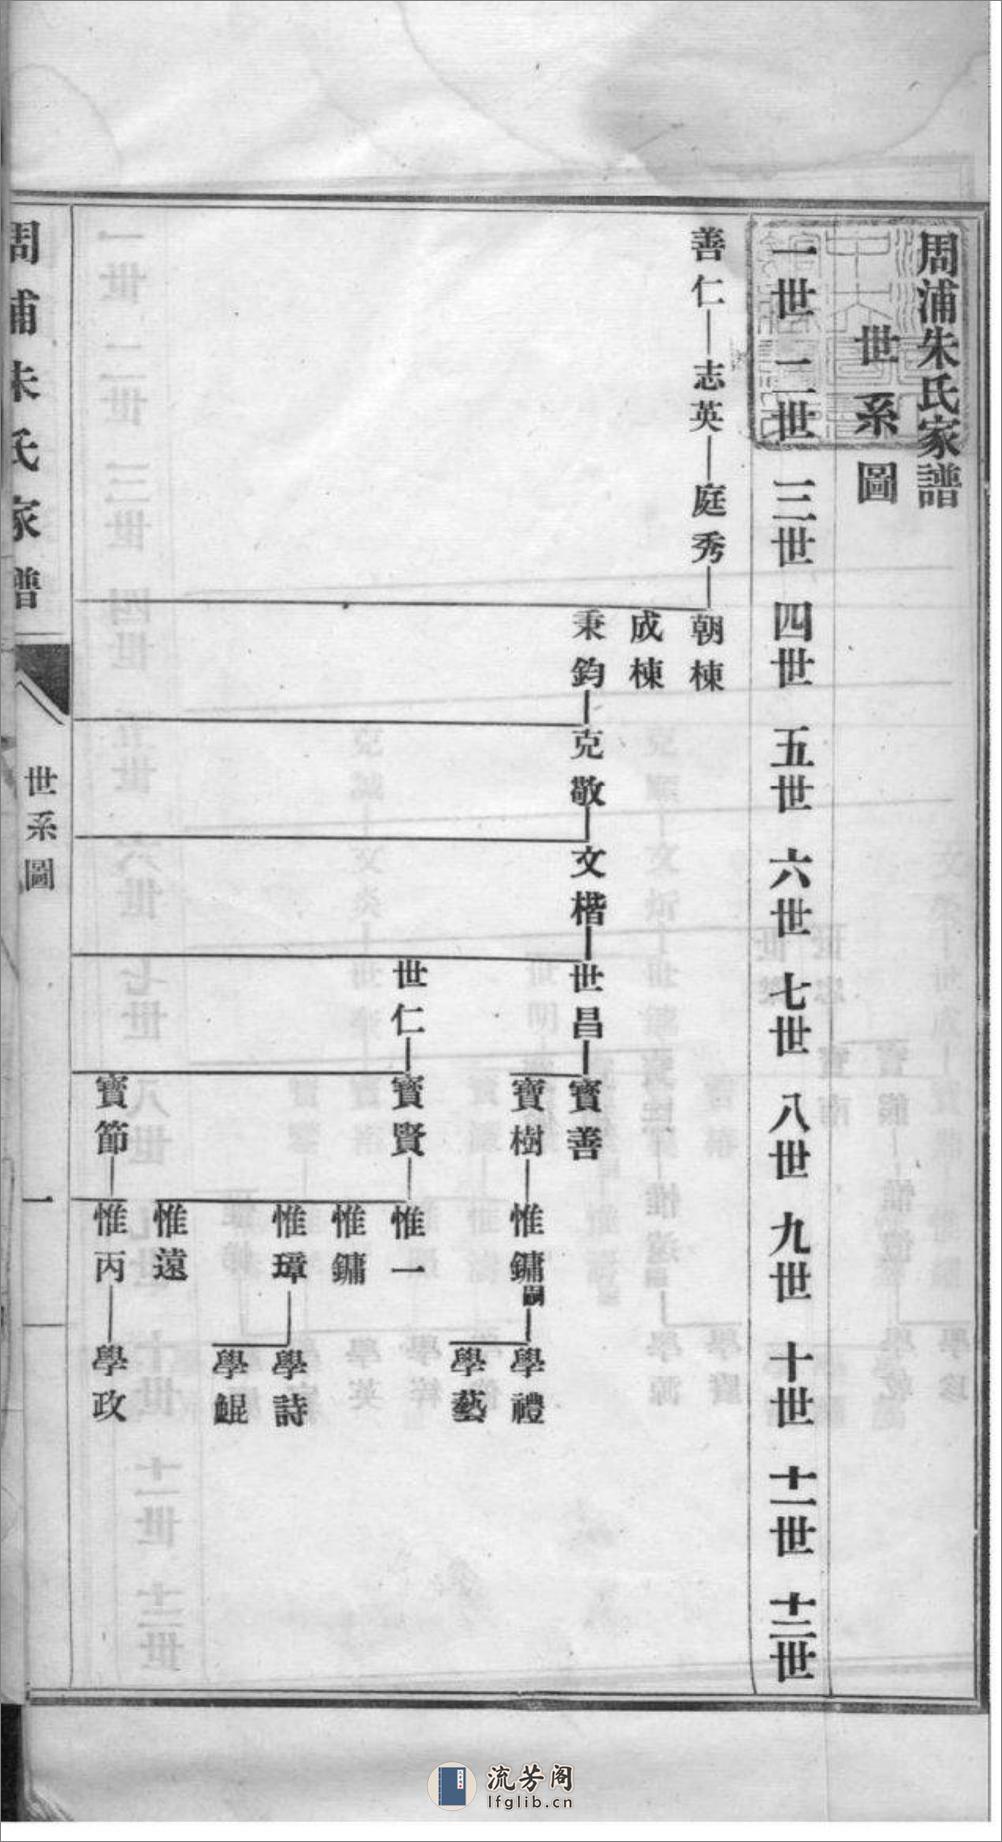 周浦朱氏家譜
世系圖
一世 二世 三世 四世 五世 六世 七世 八世 九世 十世 十一世 十二世
善仁 志英 庭秀 朝棟
成棟
秉鈞 克敬 文楷 世昌 寶善
寶樹 惟鏞嗣 學禮
學藝
世仁 寶賢 惟一
惟鏞
惟璋 學詩
學鯤
惟遠
寶節 惟丙 學政
周浦朱氏家譜
世系圖
一
流芳阁
lfglib.cn